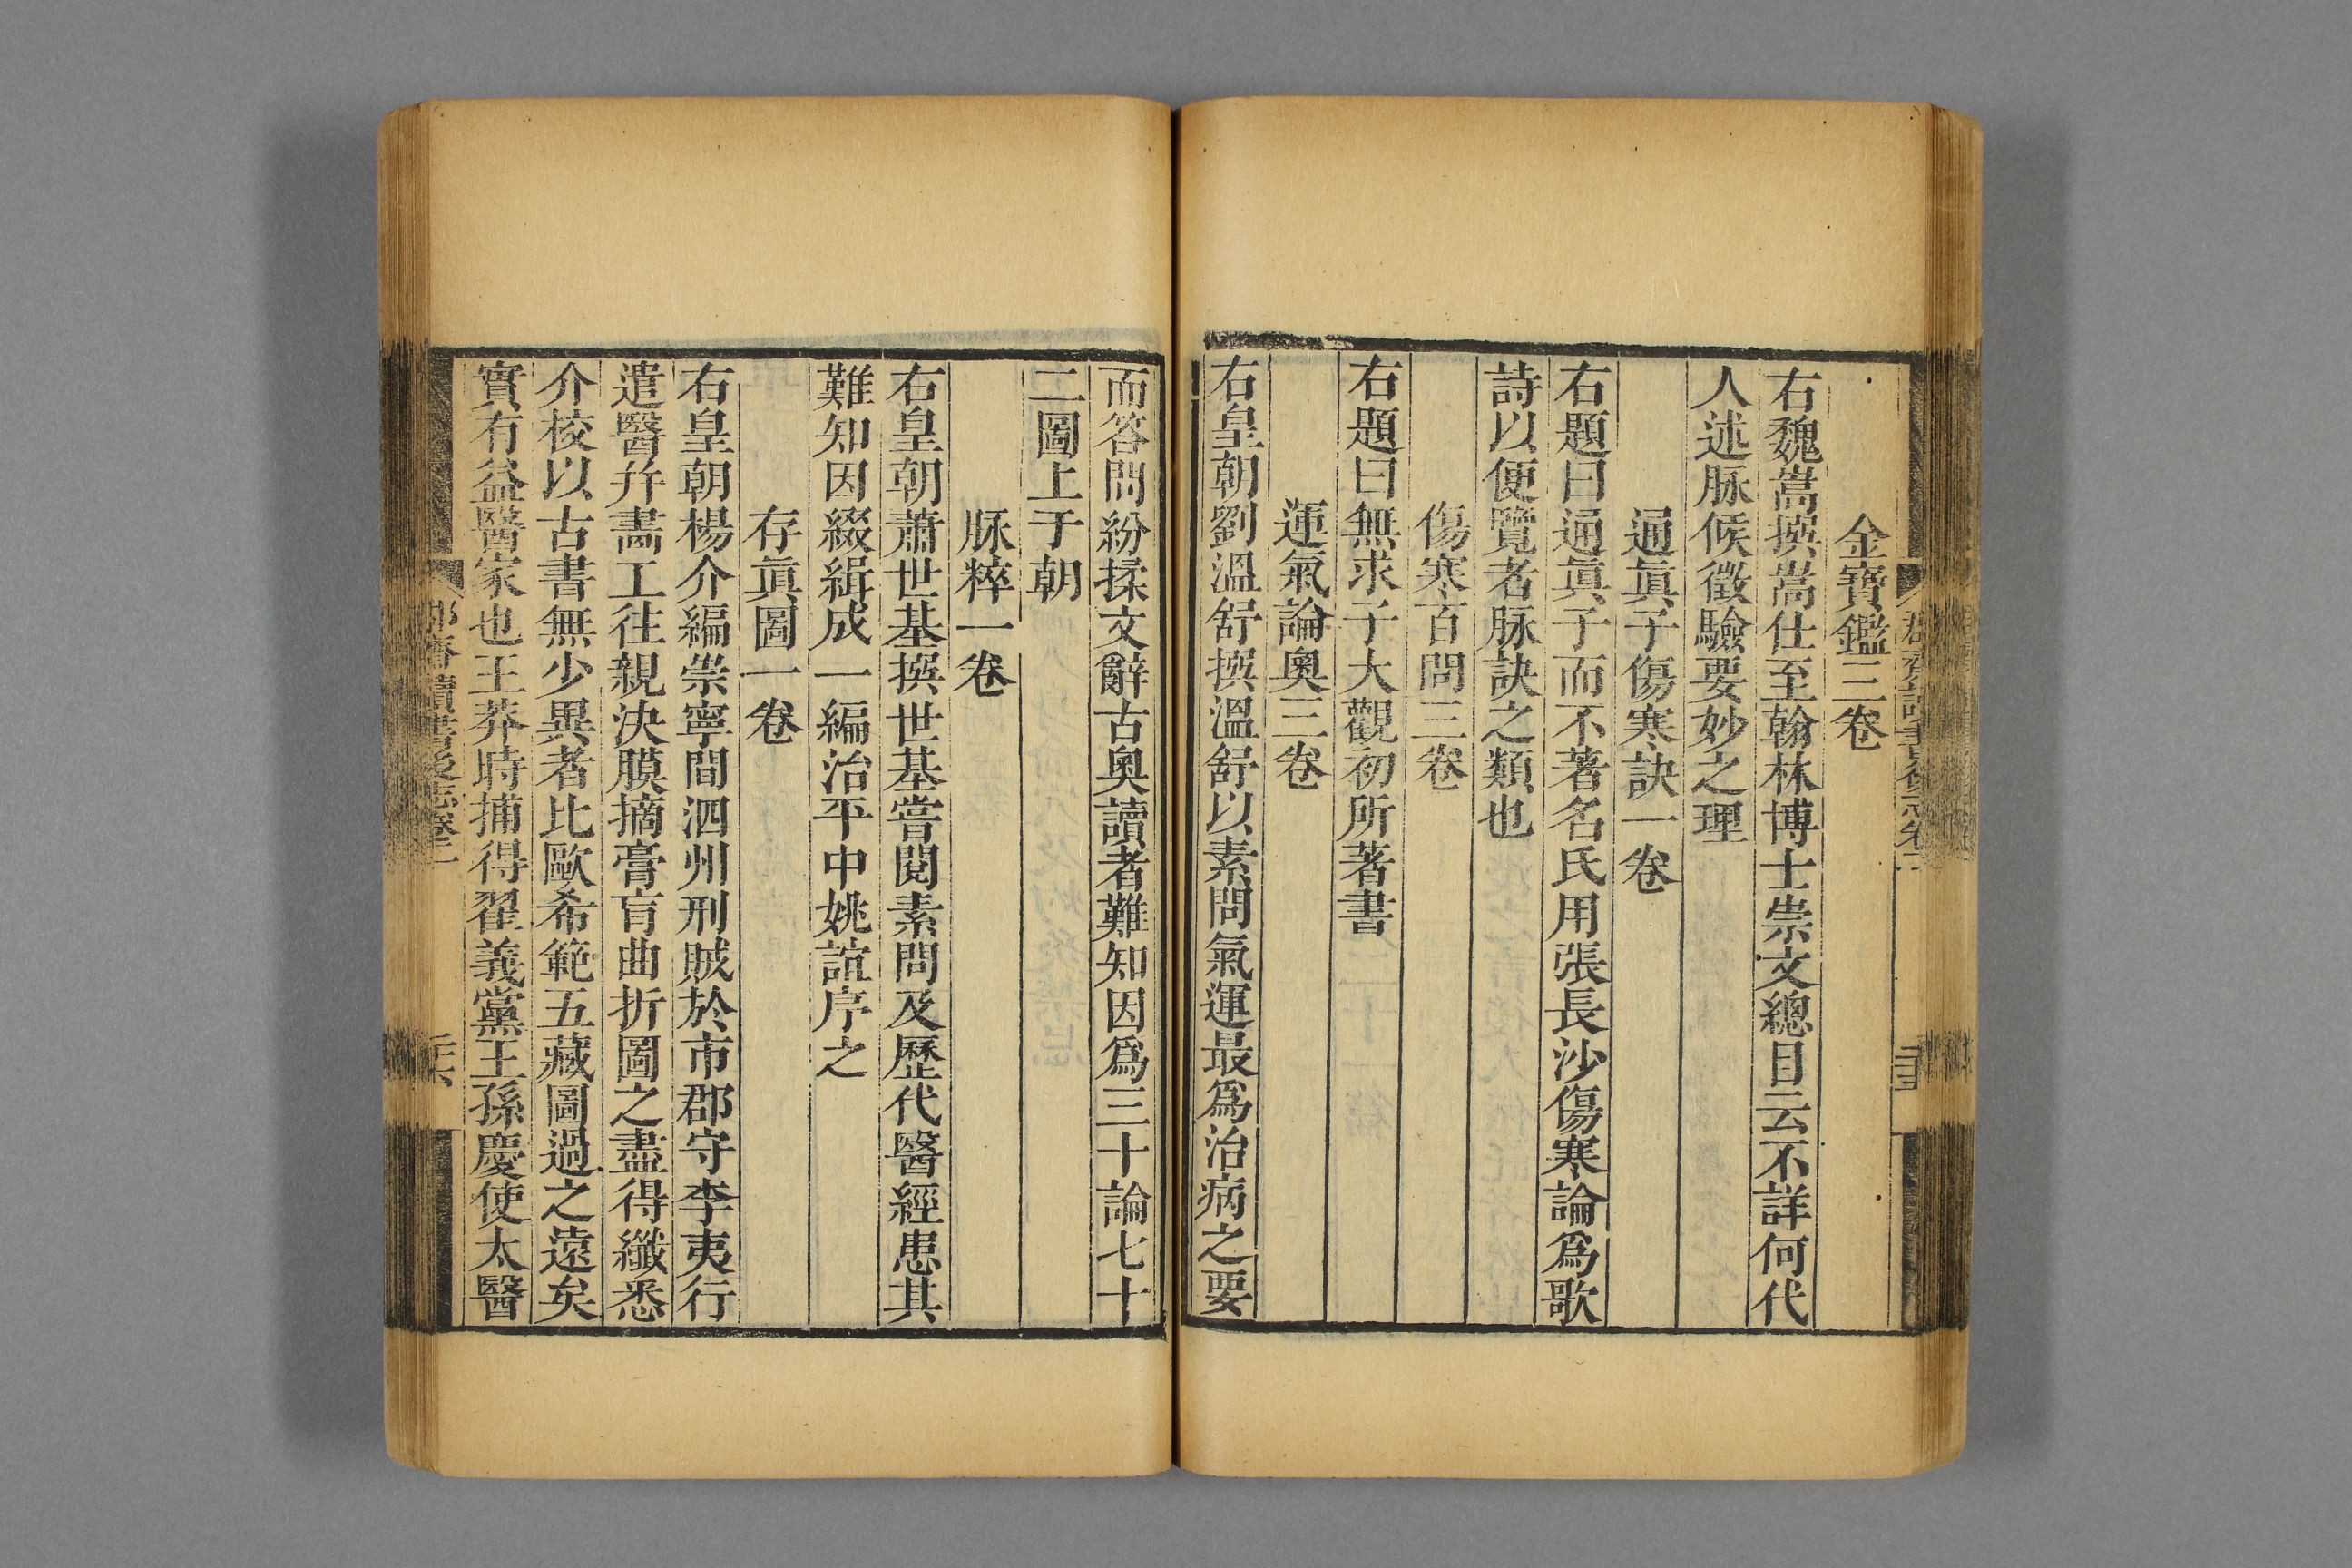 金寶鑑三卷
右魏嵩撰嵩仕至翰林博士崇文總目云不詳何代
人述脉候徵驗要妙之理
通眞子傷寒訣一卷
右題曰通眞子而不著名氏用張長沙傷寒論爲歌
詩以便覽者脉訣之類也
傷寒百問三卷
右題曰無求子大觀初所著書
運氣論奧三卷
右皇朝劉溫舒撰溫舒以素問氣運最爲治病之要
而答問紛揉文辭古奧讀者難知因爲三十論七十
二圖上于朝
脉粹一卷
右皇朝蕭世基撰世基嘗閱素問及歷代醫經患其
難知因綴緝成一編治平中姚誼序之
存眞圖一卷
右皇朝楊介編崇寧間泗州刑賊於市郡守李夷行
遣醫幷畵工往親決膜摘膏肓曲折圖之盡得纖悉
介校以古書無少異者比歐希範五藏圖過之遠矣
實有益醫家也王莽時捕得翟義黨王孫慶使太醫
郡齋讀書後志卷二